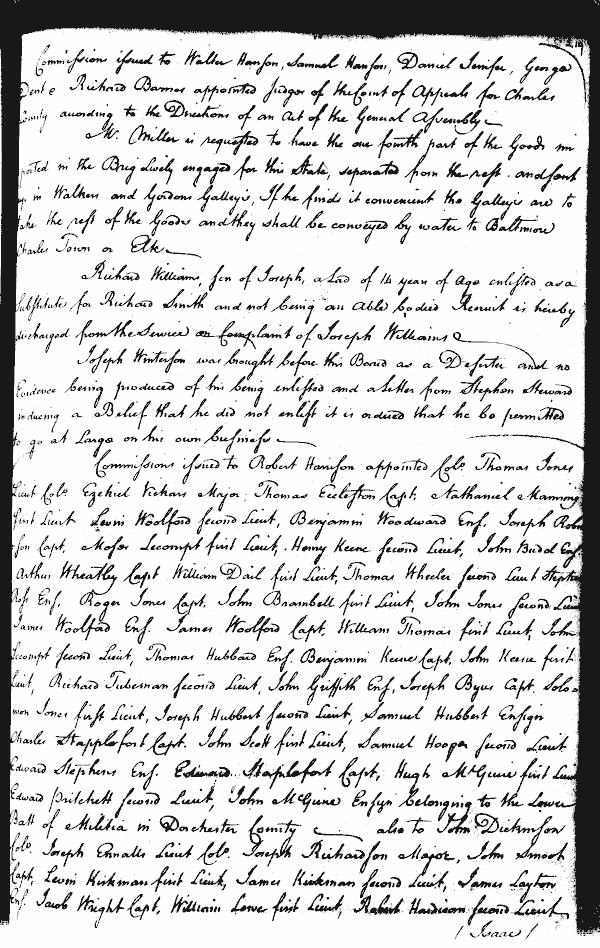 Commission issued to Walter Hanson, Samuel Hanson, Daniel Jenifer, George
Dent & Richard Barnes appointed Judges of the Court of Appeals for Charles
County according to the Directions of an Act of the General Assembly
Mr. Miller is requested to have the one fourth part of the Goods im
ported in the Brig Lively engaged for this State, separated from the rest and sent
up in Walkers and Gordons Galleys, If he finds it convenient the Galleys are to
take the rest of the Goods and they shall be conveyed by water to Baltimore
Charles Town or Elk
Richard Williams, son of Joseph, a Lad of 14 year of Age enlisted as a
Substitute for Richard Smith and not being an Able bodied Recruit is hereby
discharged from the Service on Complaint of Joseph Williams
Joseph Winterson was bought before this Board as a Deserter and no
Evidence being produced of his being enlisted and a Letter from Stephen Steward
inducing a Belief that he did not enlist it is ordered that he be permitted
to go at Large on his own business
Commissions issued to Robert Harrison appointed Colo. Thomas Jones
Lieut Colo. Ezekiel Vickars Major, Thomas Eccleston Capt. Nathaniel Manning
first Lieut Levin Woolford second Lieut, Benjamin Woodward Ens. Joseph Robin
son Capt, Moses Lecompt first Lieut, Henry Keene second Lieut, John Budd Ens.
Arthur Wheatley Capt William Dail first Lieut, Thomas Wheeler second Lieut Stephen
Ross Ens. Roger Jones Capt, John Brambell first Lieut, John Jones second Lieut
James Woolford Ens. James Woolford Capt, William Thomas first Lieut, John
Lecompt second Lieut, Thomas Hubbard Ens. Benjamin Keene Capt, John Keene first
Lieut, Richard Tubeman second Lieut, John Griffith Ens, Joseph Byus Capt. Solo
mon Jones first Lieut, Joseph Hubbert second Lieut, Samuel Hubbert Ensign
Charles Stapplefort Capt. John Scott first Lieut, Samuel Hooper second Lieut
Edward Stephens Ens. Edward Staplefort Capt, Hugh McGuire first Lieut
Edward Pritchett second Lieut, John McGuire Ensign belonging to the Lower
Batt of Militia in Dorchester County also to John Dickinson
Colo. Joseph Ennalls Lieut Colo. Joseph Richardson Major, John Smoot
Capt, Levin Kirkman first Lieut, James Kirkman second Lieut, James Layton
Ens. Jacob Wright Capt, William Lowe first Lieut, Robert Hardison second Lieut
(Isaac)